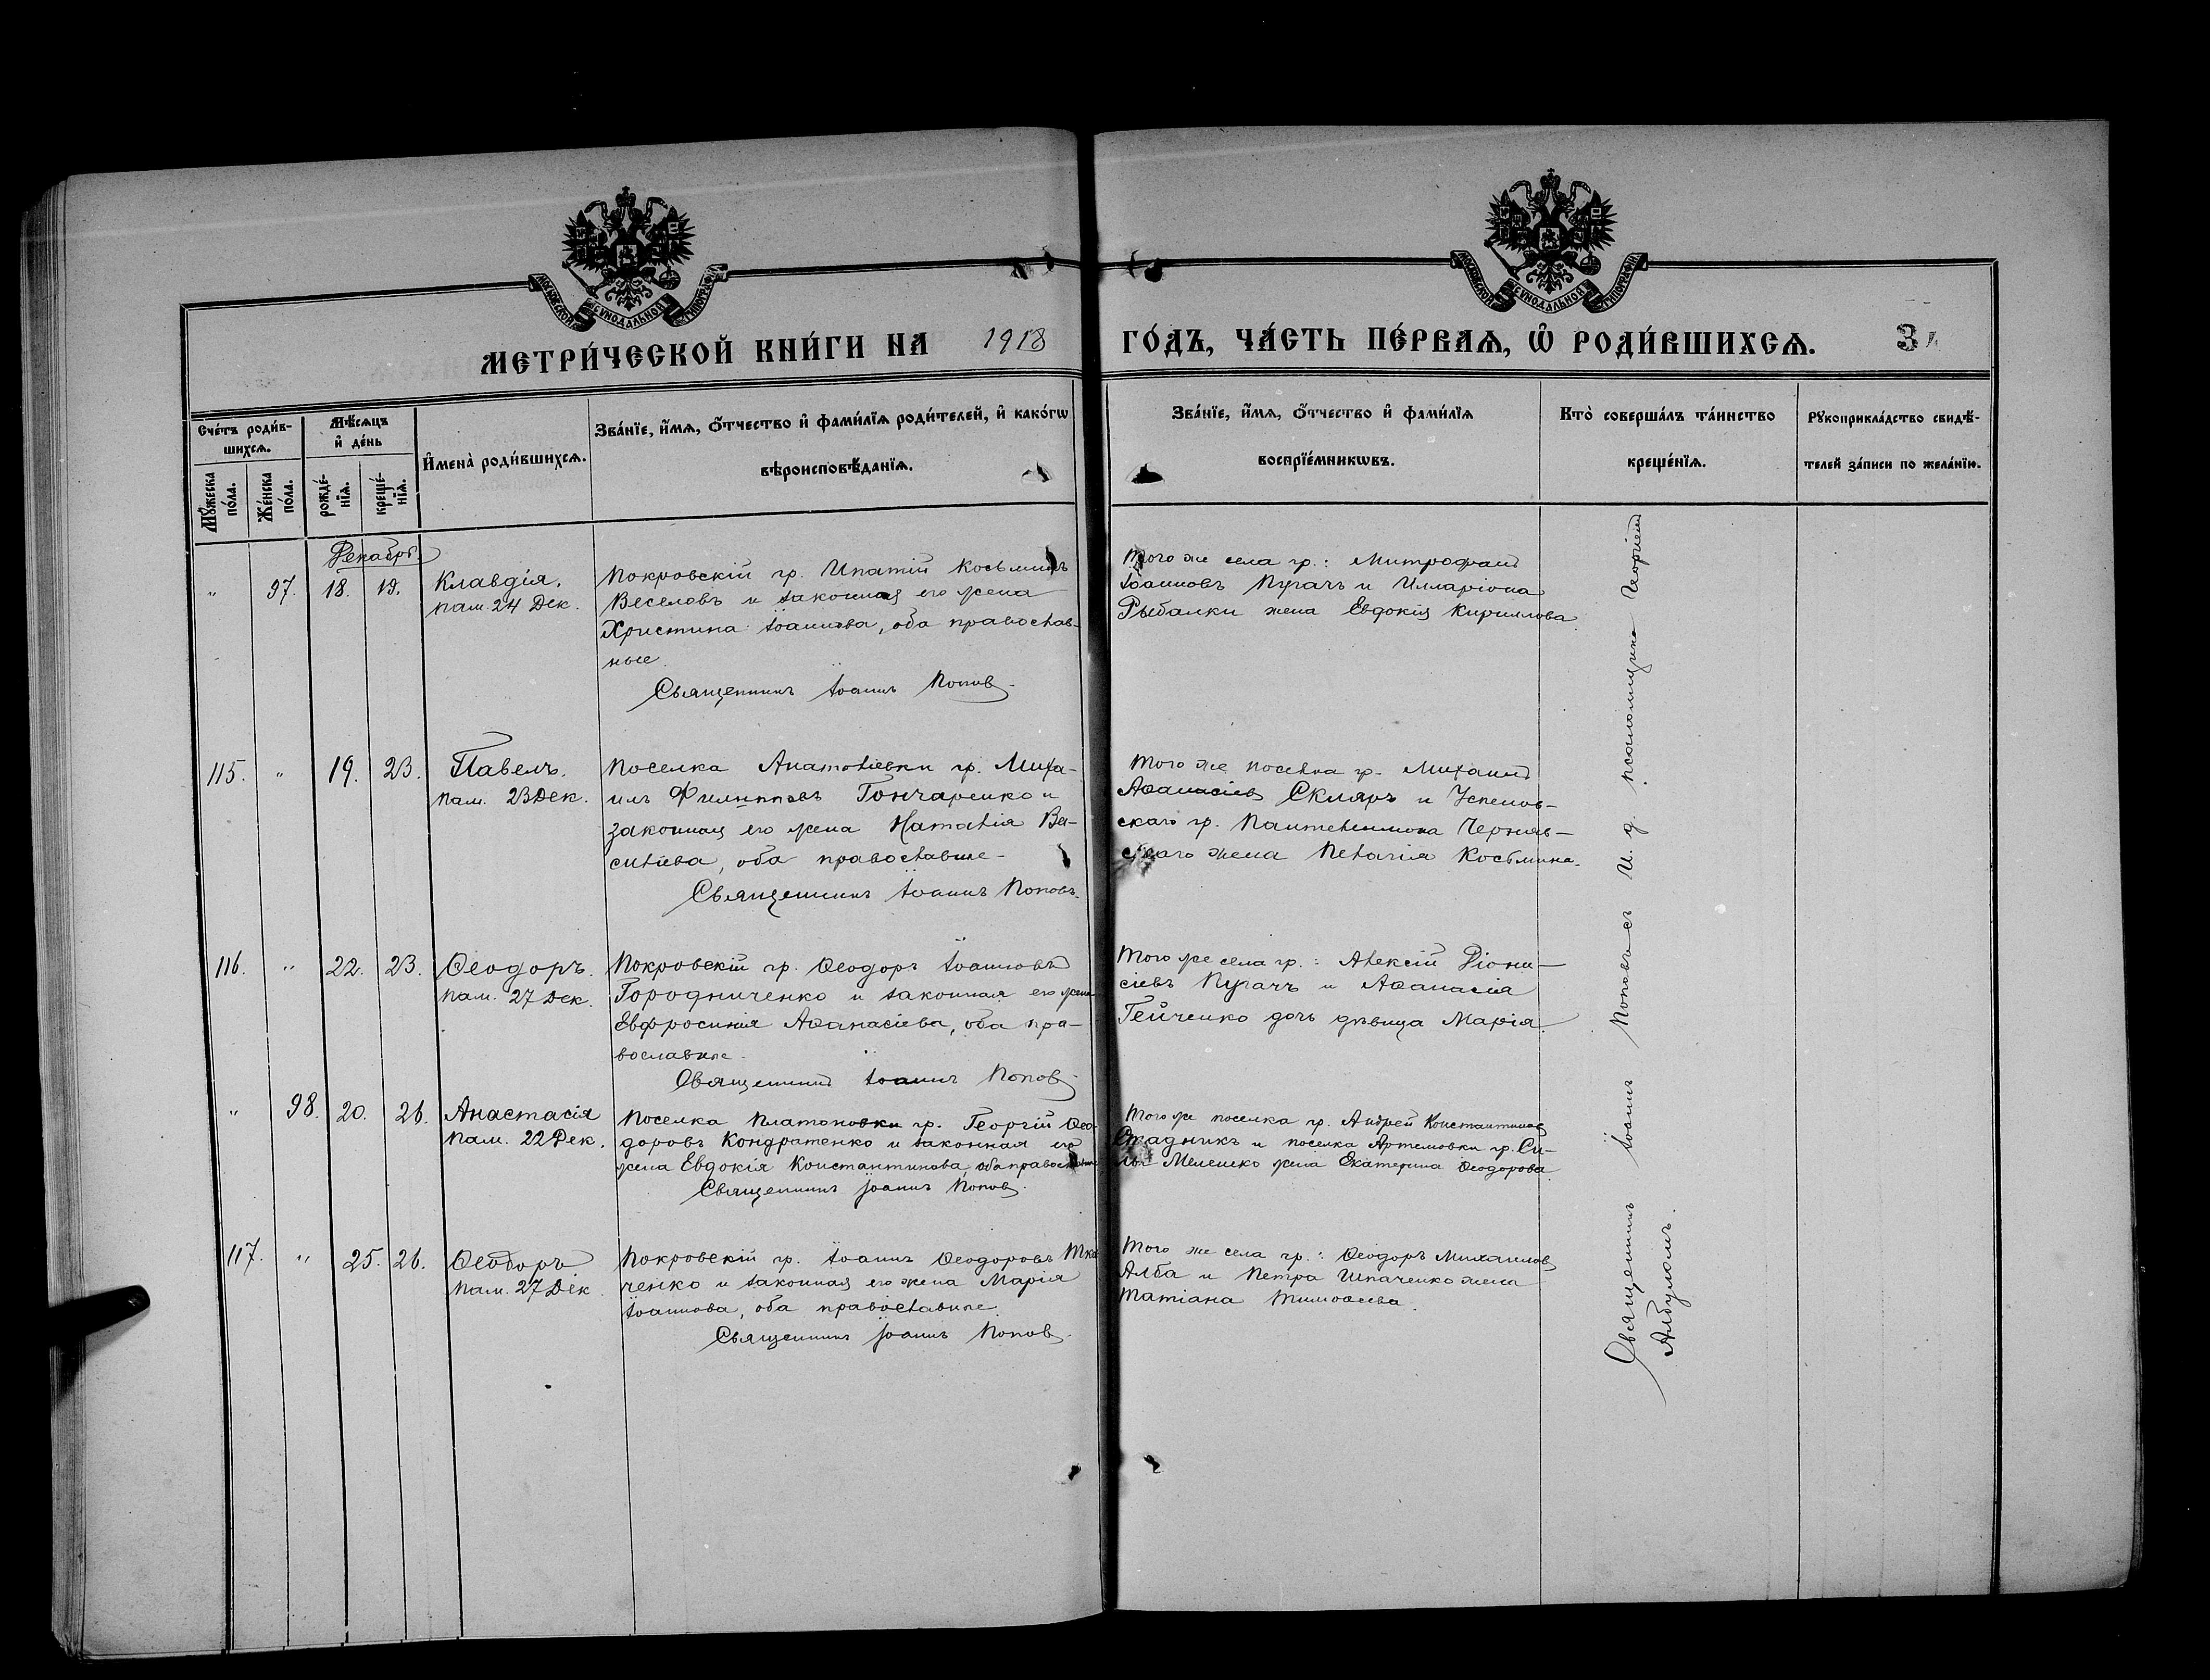 МОСКОВСКОЙ СУНОДАЛЬНОЙ ТИПОГРАФІИ
МОСКОВСКОЙ СУНОДАЛЬНОЙ ТИПОГРАФІИ
МЕТРИ́ЧЕСКОЙ КНИ́ГИ НА 1918 ГО́ДЪ, ЧА́СТЬ ПЕ́РВАѦ, Ѡ҆ РОДИ́ВШИХСѦ.
Сче́тъ роди́в-
шихсѧ.
Мꙋ́жеска по́ла.
Же́нска по́ла.
Мѣ́сѧцъ
и҆ де́нь
рожде́-
нїѧ.
креще́-
нїѧ.
И҆мена̀ роди́вшихсѧ.
Зва́нїе, и҆́мѧ, ѻ҆́тчество и҆ фами́лїѧ роди́телей, и҆ како́гѡ
вѣроисповѣ́данїѧ.
Зва́нїе, и҆́мѧ, ѻ҆́тчество и҆ фами́лїѧ
воспрїе́мникѡвъ.
Кто̀ соверша́лъ та́инство
креще́нїѧ.
Рꙋкоприкла́дство свидѣ́-
телей за́писи по жела́нїю.
Декабрь
" 97. 18. 19. Клавдія.
пам. 24 Дек.
Покровскій гр. Ипатій Косьминъ
Веселовъ и законная его жена
Христина Іоаннова, оба православ-
ные.
Священникъ Іоаннъ Попов
Того же села гр.: Митрофанъ
Іоанновъ Пугачъ и Илларіона
Рыбалки жена Евдокія Кириллова.
115. " 19. 23. Павелъ.
пам. 23 Дек.
Поселка Анатоліевки гр. Миха-
илъ Филипповъ Гончаренко и
законная его жена Наталія Ва-
силіева, оба православные
Священникъ Іоаннъ Поповъ.
Того же поселка гр. Михаилъ
Аѳанасіевъ Скляръ и Успенов-
скаго гр. Пантелеимона Черняв-
скаго жена Пелагія Косьмина.
116. " 22. 23. Ѳеодоръ.
пам. 27 Дек.
Покровскій гр. Ѳеодоръ Іоанновъ
Городниченко и законная его жена
Евфросинія Аѳанасіева, оба пра-
вославные.
Священникъ Іоаннъ Попов
Того же села гр.: Алексій Діони-
сіевъ Пугачъ и Аѳанасія
Гейченко дочь дѣвица Марія.
" 98. 20. 26. Анастасія
пам. 22 Дек.
Поселка Платоновки гр. Георгій Ѳео-
доровъ Кондратенко и законная его
жена Евдокія Константинова, оба православные
Священникъ Іоаннъ Попов.
Того же поселка гр. Андрей Константинов
Стадникъ и поселка Артемовки гр. Си-
лы жена Екатерина Ѳеодорова.
117. " 25. 26. Ѳеодоръ
пам. 27 Дек.
Покровскій гр. Іоаннъ Ѳеодоровъ Тка-
ченко и законная его жена Марія
Іоаннова, оба православные.
Священникъ Іоаннъ Попов.
Того же села гр.: Ѳеодоръ Михаилов
Алба и Петра Шпаченко жена
Татіана Тимоѳеева.
Священникъ Іоаннъ Поповъ съ И. д. псаломщика Георгіемъ
Албуломъ.